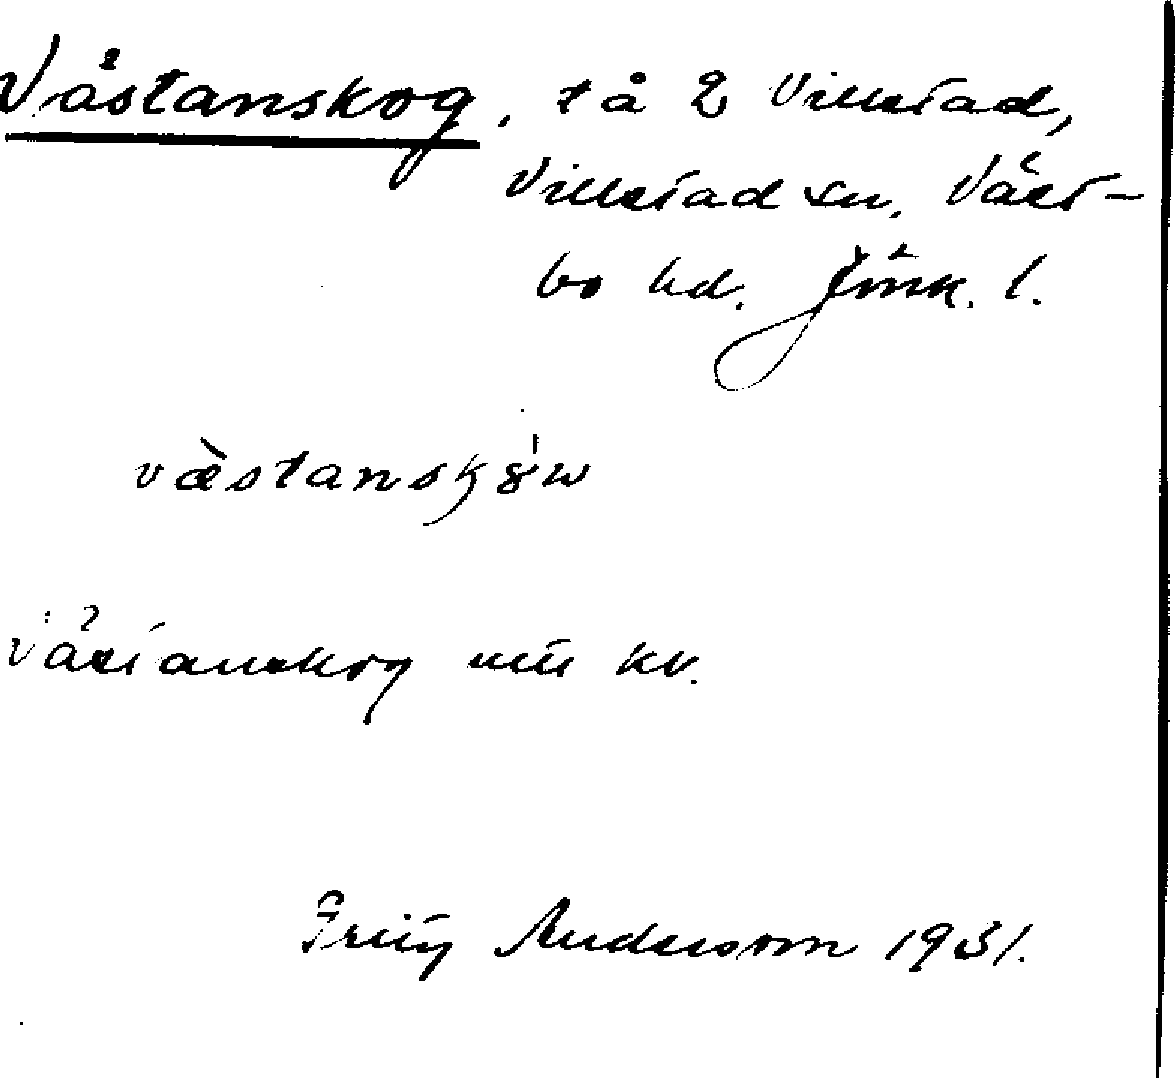 Västanskog, t å 2 Villstad,
Villstad sn. Väst-
bo hd. Jönk. l.
væ̀stanskɣ̍w
Västanskog utü kv.
Fritz Andersson 1931.